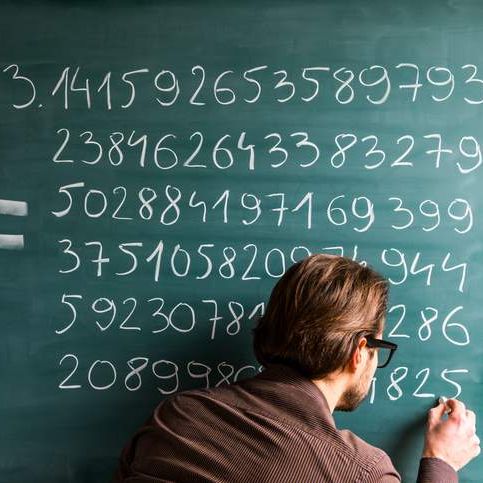 3.141592653589793
238462643383279
502884197169399
375105820974944
59230781 286
208998 1825